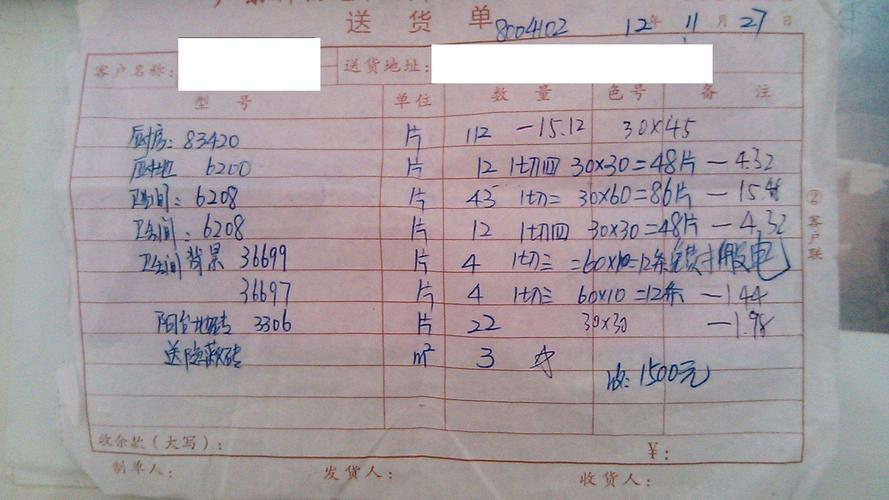 送货单
8004102 12年 11月 27日
客户名称: 送货地址:
型号 单位 数量 色号 备注
厨房: 83420 片 112 —15.12 30×45
厨地 6200 片 12 1切四 30×30=48片 —4.32
卫生间: 6208 片 43 1切二 30×60=86片 —15.48
卫生间: 6208 片 12 1切四 30×30=48片 —4.32
卫生间背景 36699 片 4 1切三 =60×10=12条
36697 片 4 1切三 60×10=12条 —1.44
阳台地砖 3306 片 22 30×30 —1.98
送 砖 m² 3
收: 1500元
收余款(大写): ¥:
制单人: 发货人: 收货人:
②客户联